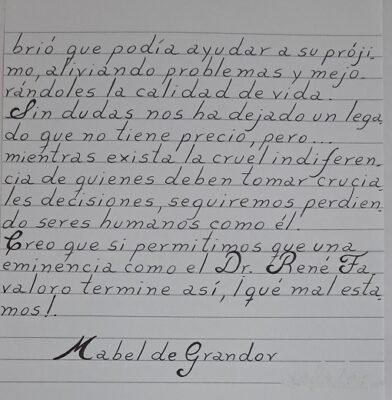 brió que podía ayudar a su próji-
mo, aliviando problemas y mejo-
rándoles la calidad de vida.
Sin dudas nos ha dejado un lega
do que no tiene precio, pero...
mientras exista la cruel indiferen-
cia de quienes deben tomar crucia
les decisiones, seguiremos perdien-
do seres humanos como él.
Creo que si permitimos que una
eminencia como el Dr. René Fa-
valoro termine así, ¡qué mal esta-
mos!.
Mabel de Grandov